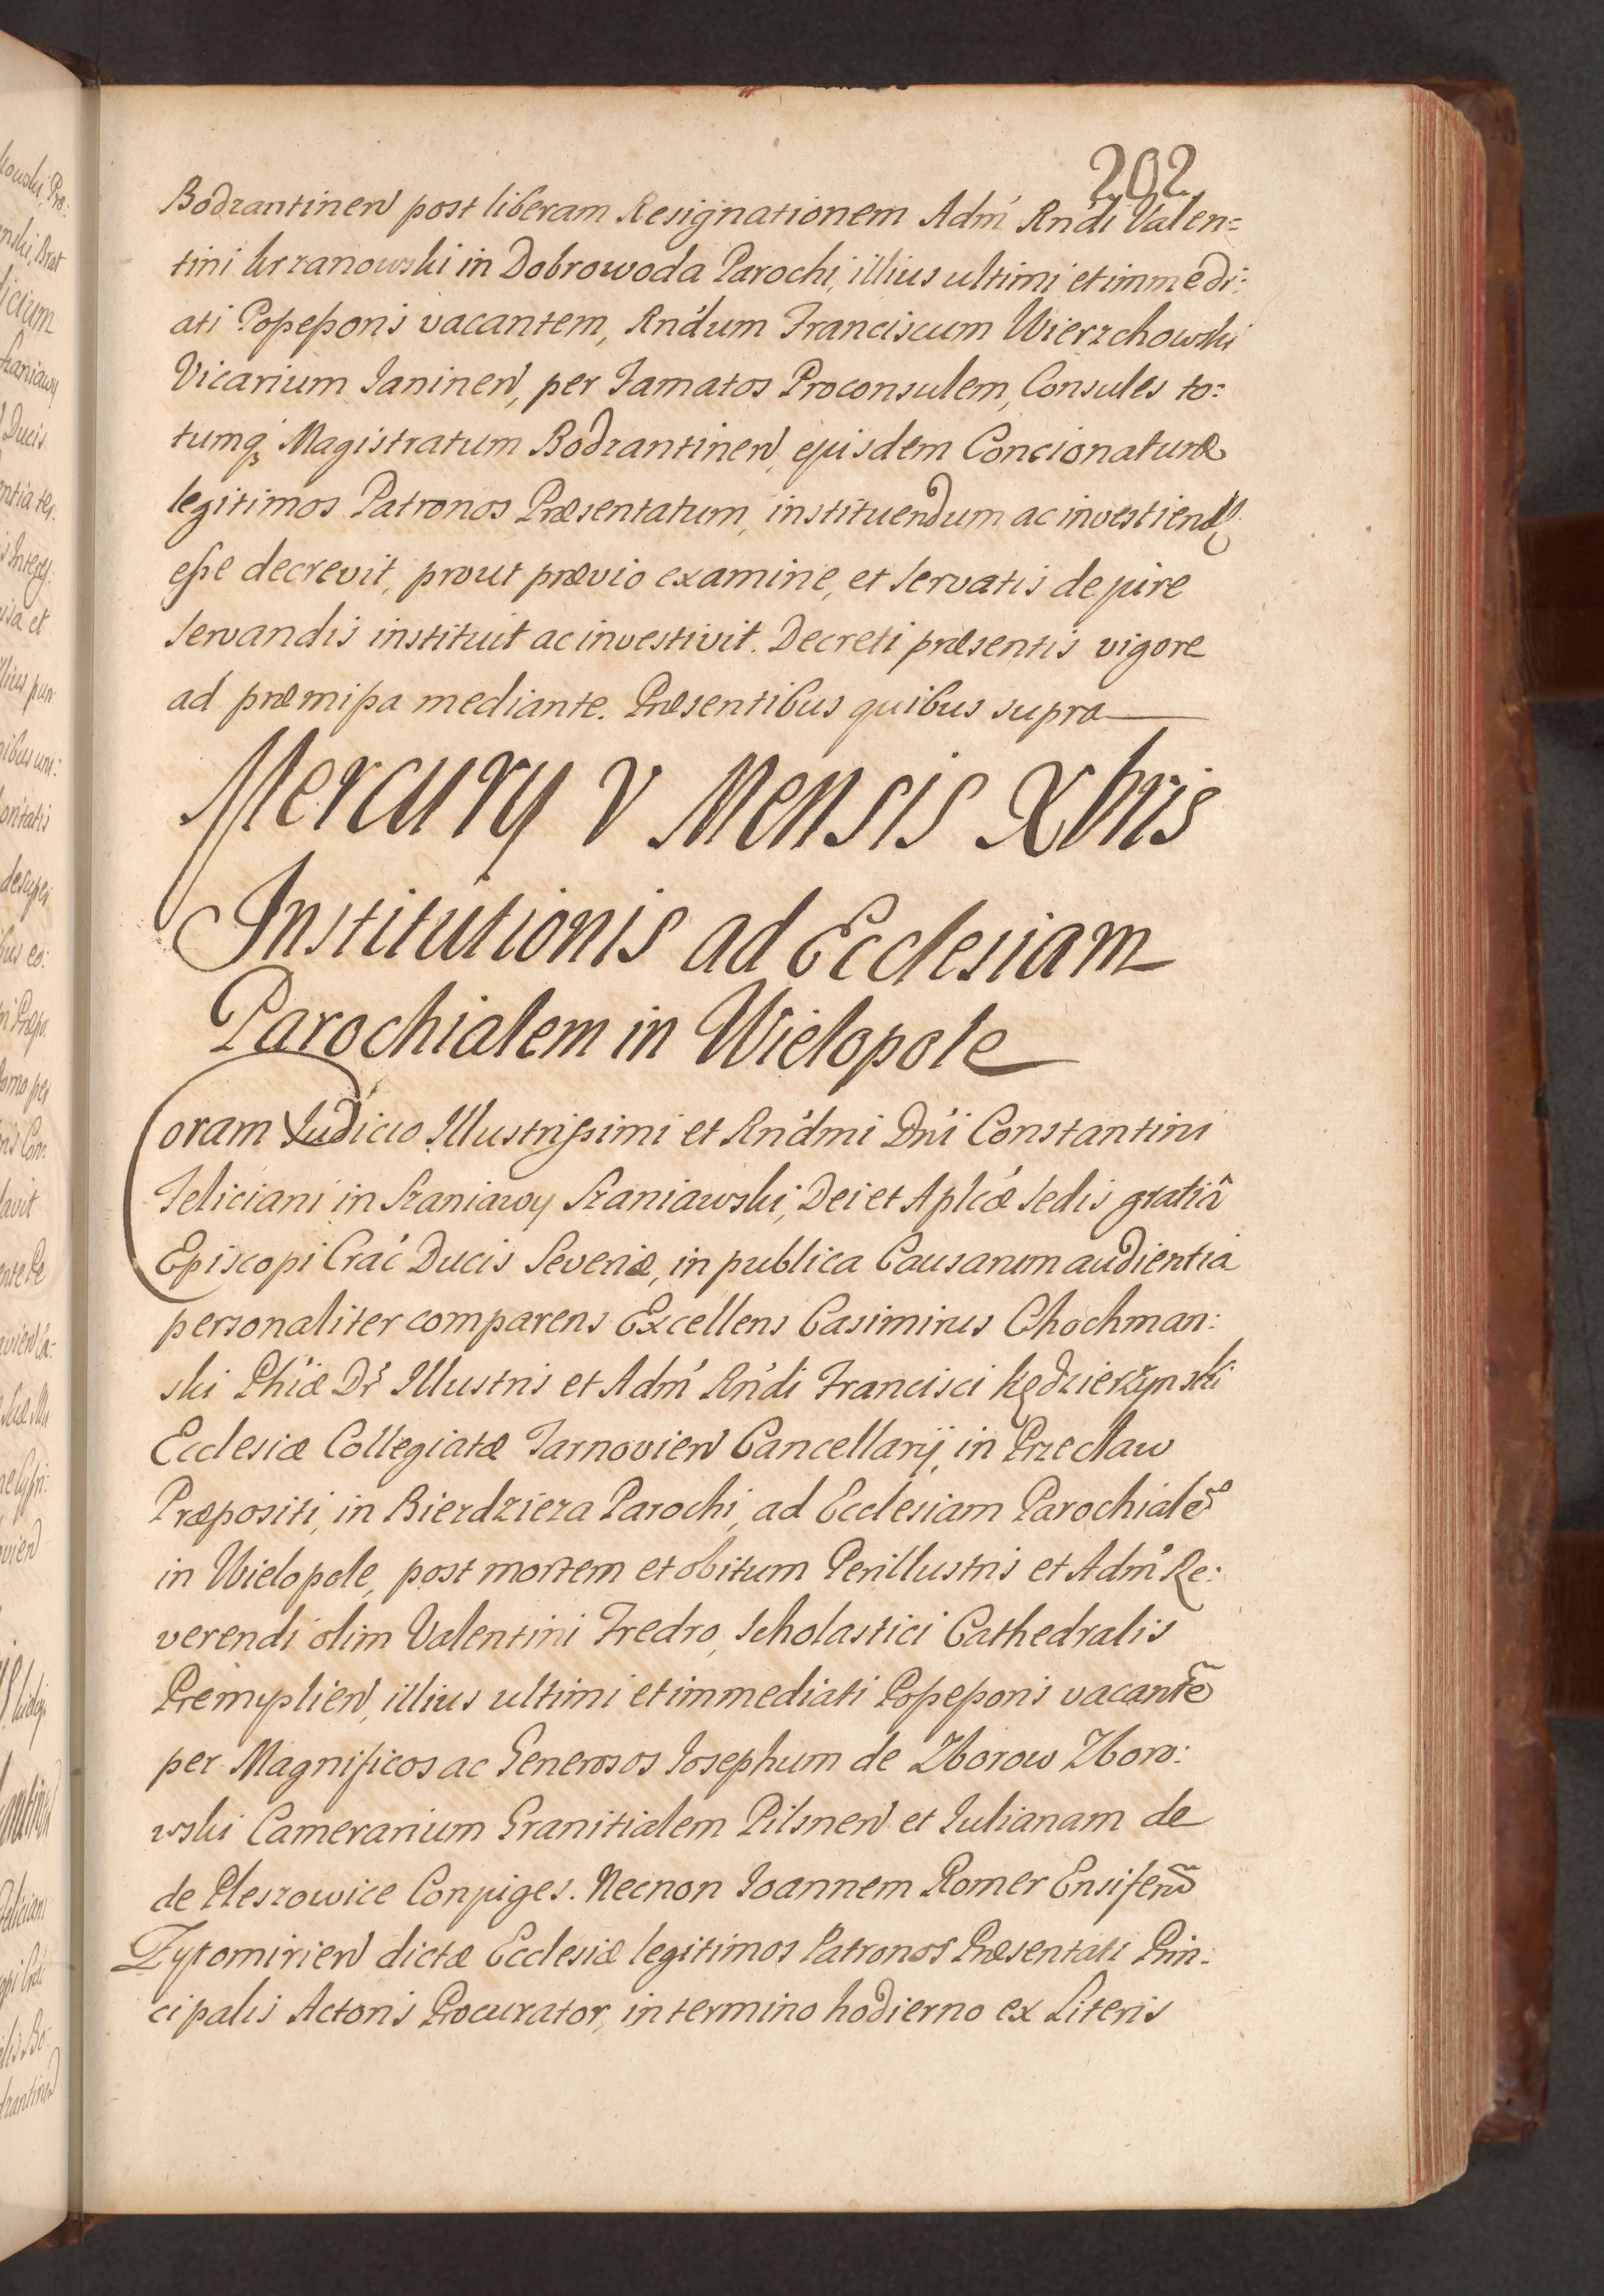 202
Bodzantinen post liberam Resignationem Adm' Rn'di Valen=
tini Krzanowski in Dobrowoda Parochi, illius ultimi et immedi:
ati Poſseſsoris vacantem, Rn'dum Franciscum Wierzchowski
Vicarium Janinen, per Famatos Proconsulem, Consules to:
tumq3 Magistratum Bodzantinen, ejusdem Concionaturæ
legitimos Patronos Præsentatum, instituendum ac investiend9
eſse decrevit, prout prævio examine, et servatis de jure
servandis instituit ac investivit. Decreti præsentis vigore
ad præmiſsa mediante. Præsentibus quibus supra
Mercury V Mensis Xbris
Institutionis ad Ecclesiam
Parochialem in Wielopole
Coram Judicio Illustriſsimi et Rn'dmi Dn'i Constantini
Feliciani in Szaniawy Szaniawski, Dei et Aplicæ Sedis gratiâ
Episcopi Crac' Ducis Severiæ, in publica Causarum audientia
personaliter comparens Excellens Casimirus Chochman:
ski Ph'iæ Dr Illustris et Adm' Rn'di Francisci Kędzierżynski
Ecclesiæ Collegiatæ Tarnovien Cancellarij, in Przecław
Præpositi, in Bierdzieza Parochi, ad Ecclesiam Parochialẽ
in Wielopole, post mortem et obitum Perillustris et Adm' Re:
verendi olim Valentini Fredro, Scholastici Cathedralis
Premyslien, illius ultimi et immediati Poſseſsoris vacantẽ
per Magnificos ac Generosos Josephum de Zborow Zboro:
wski Camerarium Granitialem Pilsnen et Julianam de
de Pleszowice Conjuges. Necnon Joannem Romer Ensiferũ
Zytomirien dictæ Ecclesiæ legitimos Patronos Præsentati Prin:
cipalis Actoris Procurator, in termino hodierno ex Literis